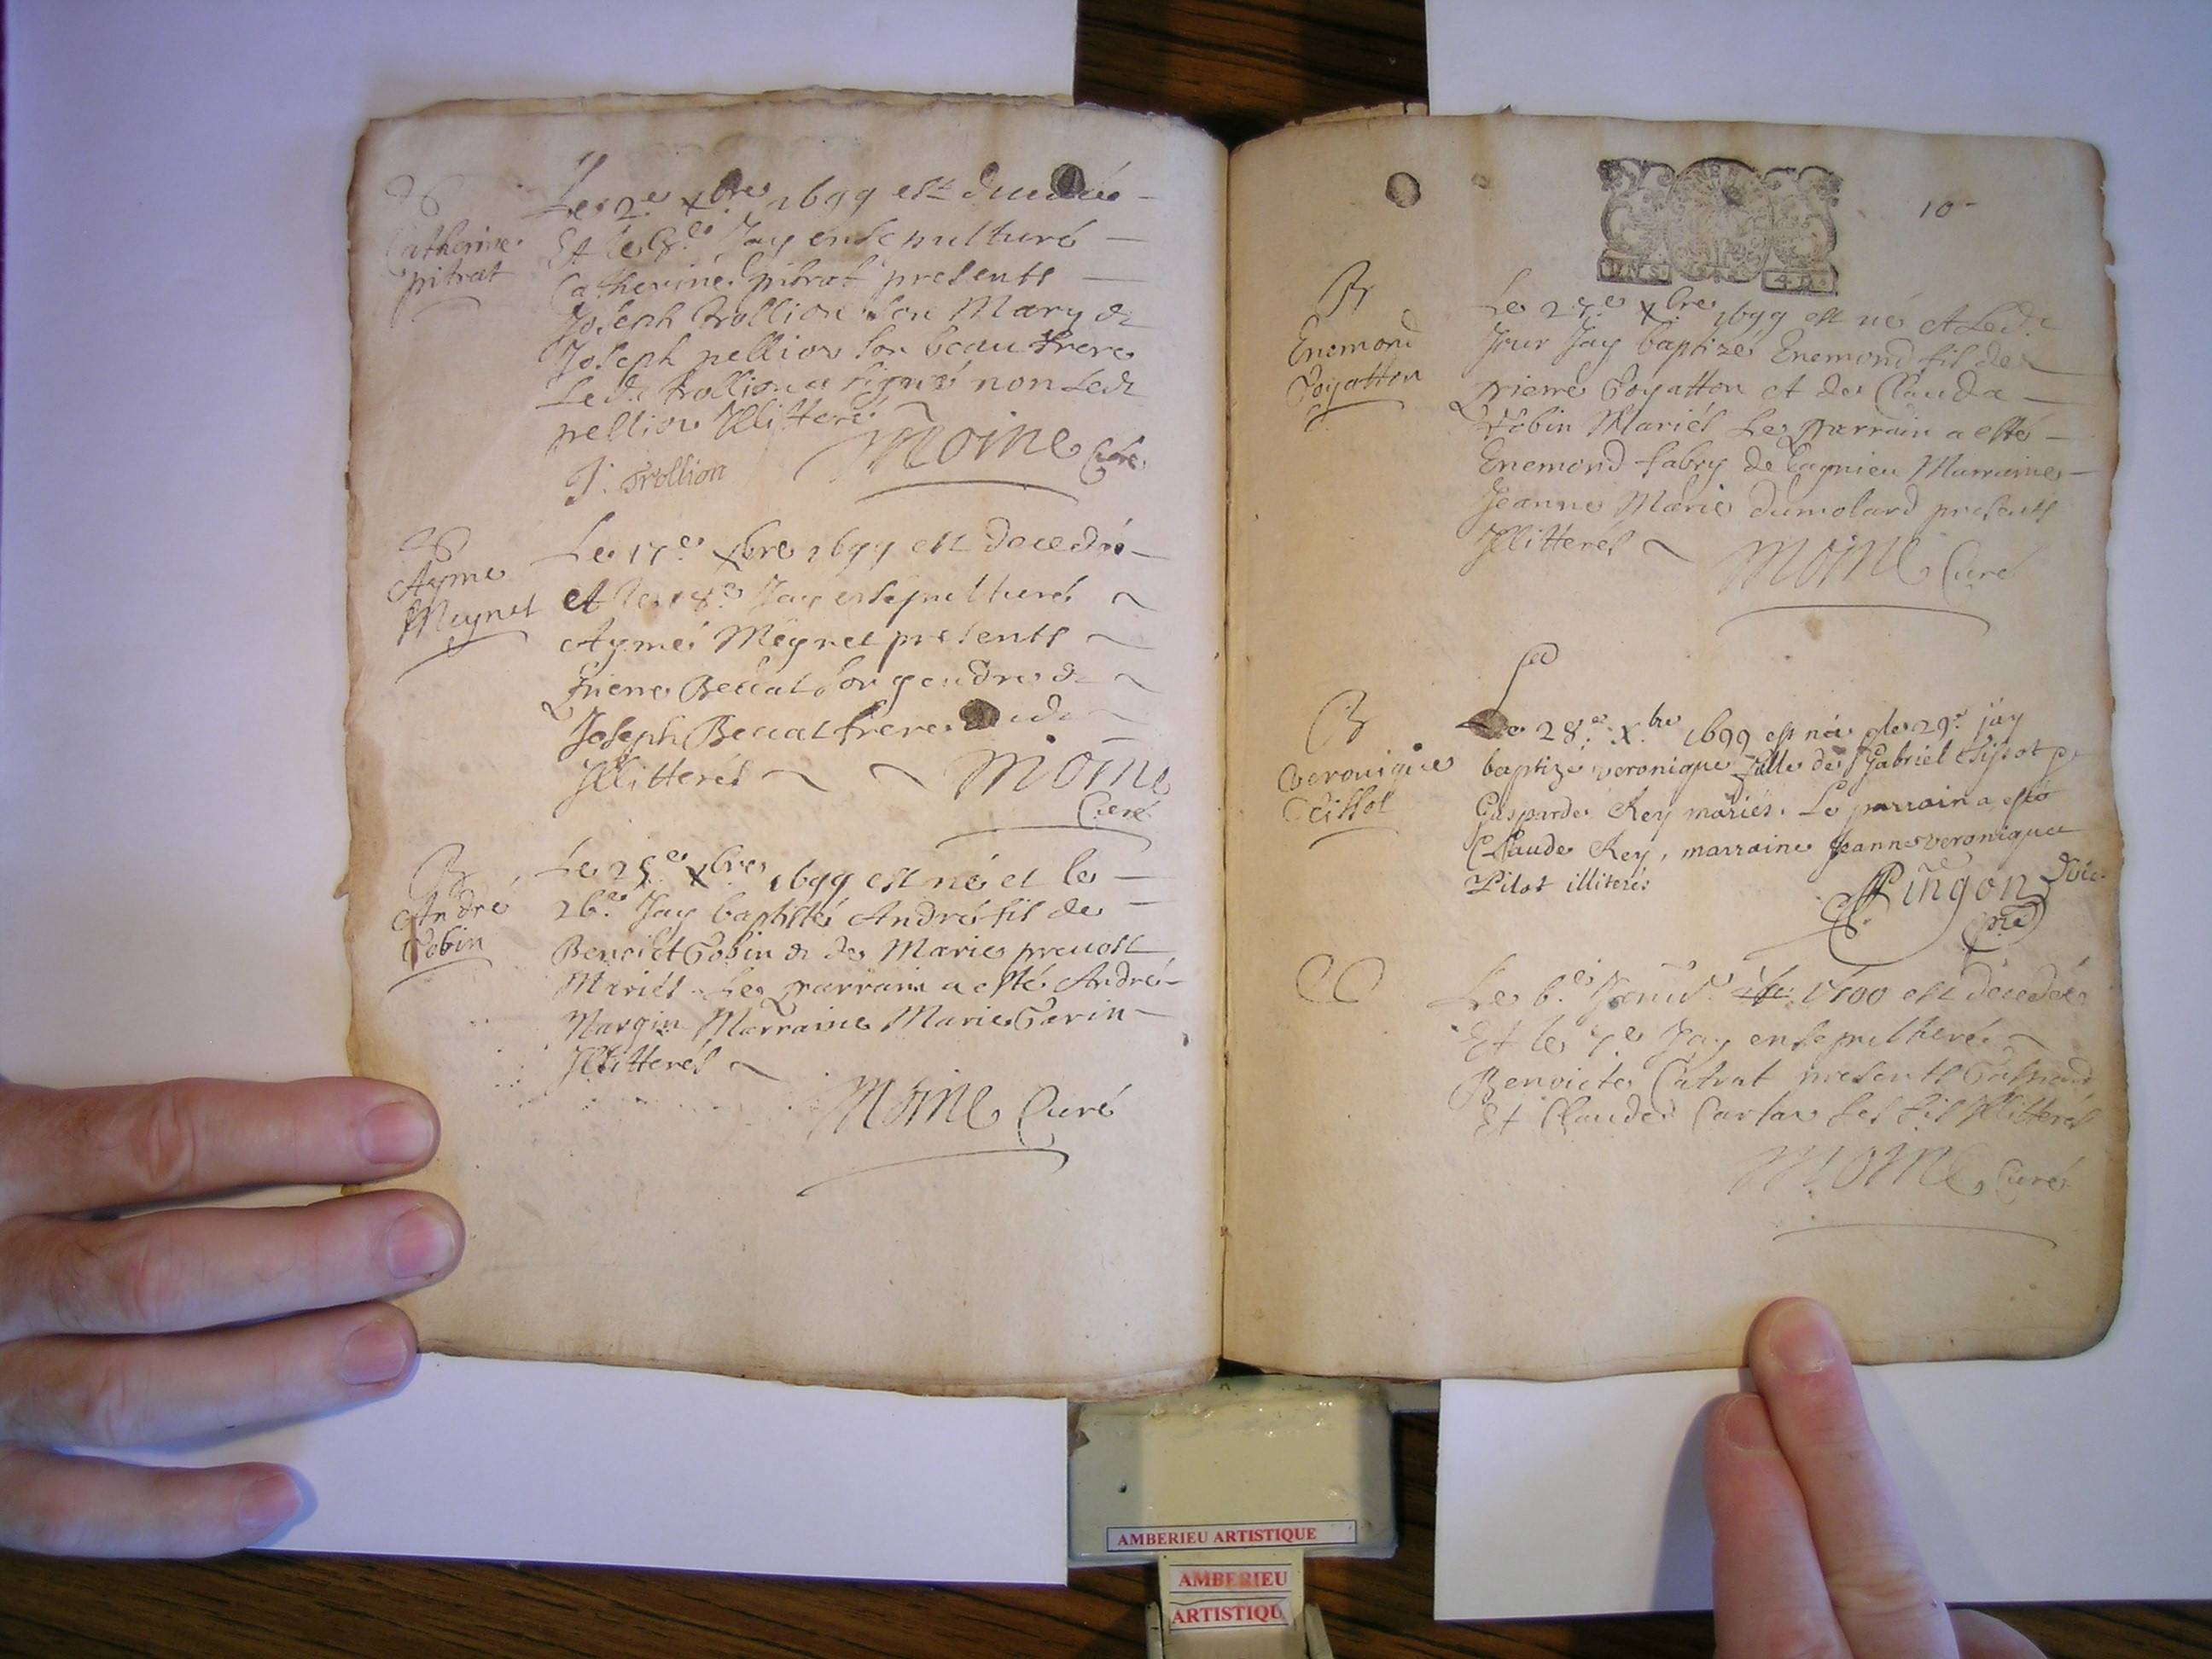 Catherine
pitrat
Le 2.e xbre 1699 est decedée
Et le Jay ensepulturé
Catherine pitrat presents
Joseph Trollion son Mary &
Joseph pellion son beau frere
Led. Trollion a signé non led.
pellion Illitteré
Moine Curé
J. Trollion
Ayme
Meynet
Le 17.e xbre 1699 est decedé
et le 18.e Jay ensepulturé
Aymé Meynet presents
pierre Beccat son gendre &
Joseph Beccat frere dud.
Illitterés
Moine
Curé
B
André
Gobin
Le 25.e xbre 1699 est né et le
26.e Jay baptisté André fil de
Benoict Gobin & de Marie prevost
Mariés Le parrain a esté André
Margin Marraine Marie Garin
Illitterés
Moine Curé
10
B
Enemond
Goyatton
Le 27.e xbre 1699 est né et Led.t
Jour Jay baptizé Enemond fil de
pierre Goyatton et de Clauda
Gobin Mariés Le parrain a esté
Enemond fabry de Lagnieu Marraine
Jeanne Marie dumolard presents
Illitterés
Moine Curé
B
Veronique
Tissot
Le 28.e X.bre 1699 est née & le 29.e jay
baptize veronique fille de Gabriel Tissot &
Gasparde Rey mariés. Le parrain a esté
Claude Rey, marraine Jeanne veronique
Pilot illiterés
Pingon Vic.
Le 6.e Janv. 1700 est decedée
Et le 7.e Jay ensepulheré
Benoicte Catrat presents Gaspard
Et Claude Carlar ses fils Illitterés
Moine Curé
AMBERIEU ARTISTIQUE
AMBERIEU
ARTISTIQU